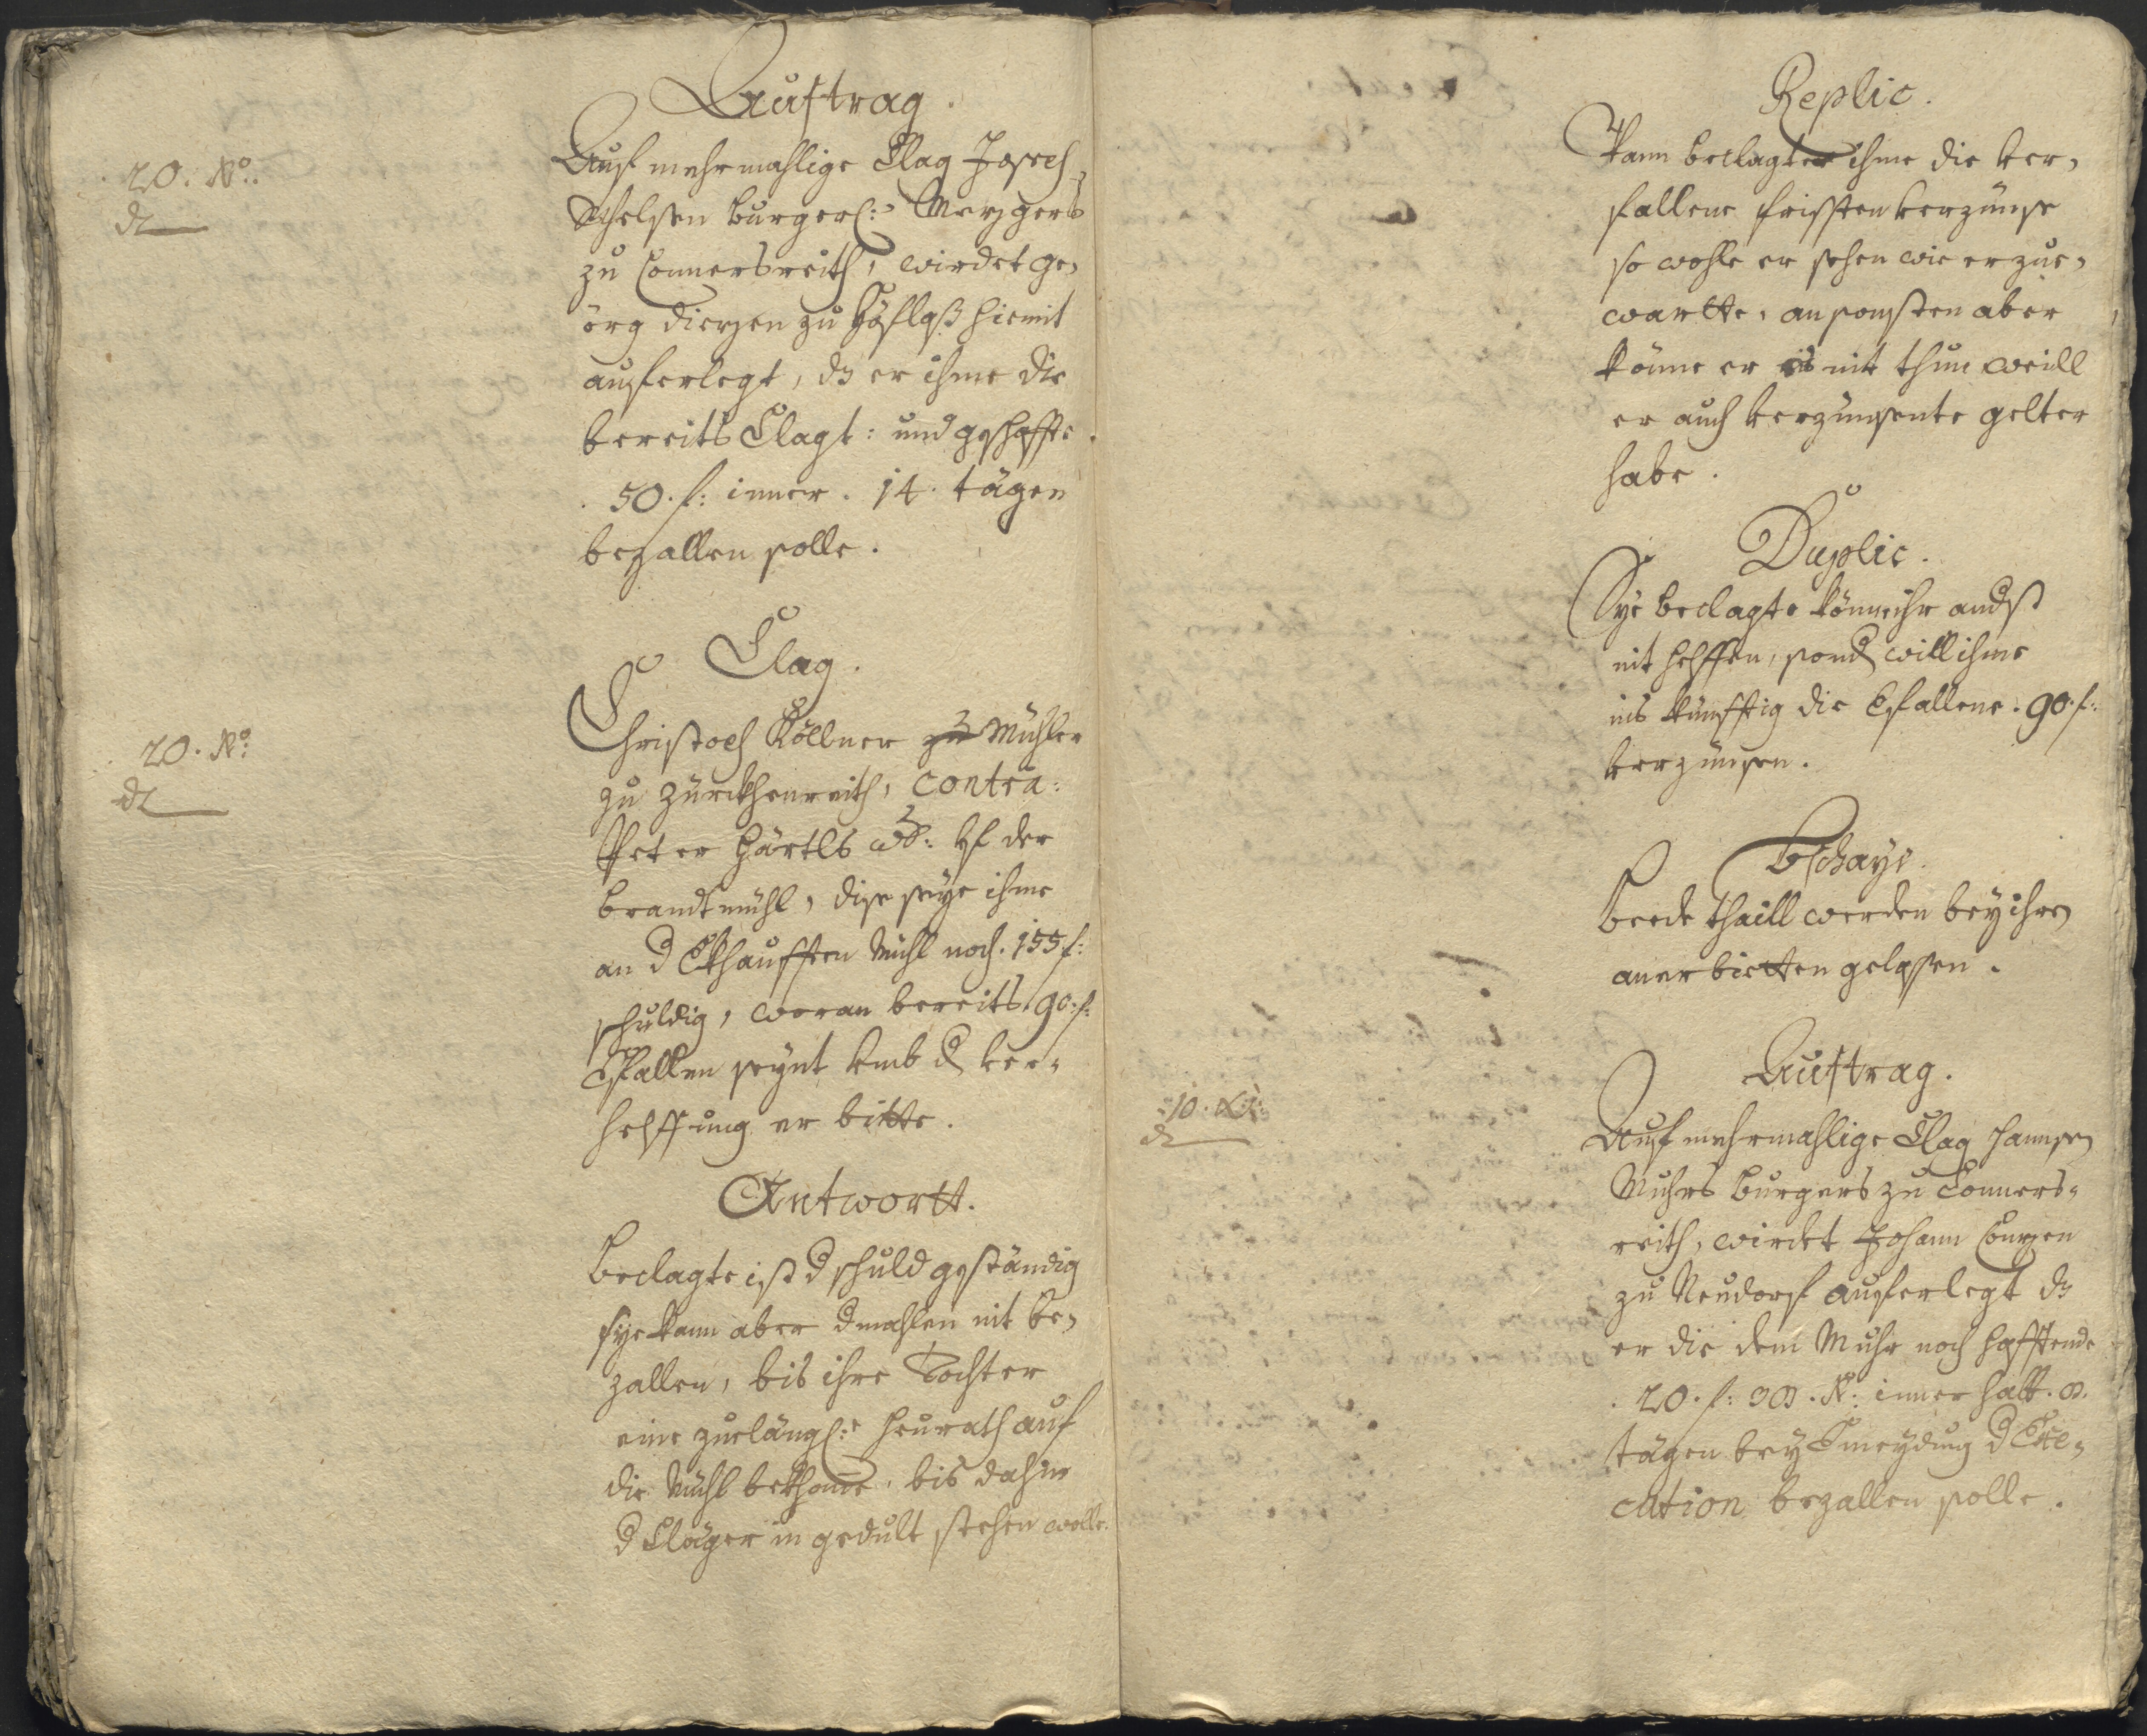 Auftrag.
20. Xr.
dt
Auf mehrmahlige Clag Joseph
Schelsen burgerl: Mezgers
zu Connersreith, wirdet Ge,
örg Dierzen zu Höflaß hiemit
auferlegt, dz er ihme die
bereits Clagt: und geschaffte
50. f: inner. 14. tägen
bezallen solle.
Clag.
20. Xr:
dt
Christoph Köllner zu Mühler
zu Zürckhenreith, contra:
Peter Härtls wb: vf der
brandtmühl, dise seye ihme
an d Erkhaufften Mühl noch. 155 f:
schuldig, woran bereits. 90. f:
Verfallen seynt vmb d ver,
helffung er bitte.
Antwortt.
Beclagte ist d schuld geständig
sye kann aber dmahlen nit be,
zallen, bis ihre Tochter
eine zuelängl: heurath auf
die Mühl bekhome, bis dahin
d Cläger in gedult stehen wolle.
Replic.
Kann beclagter ihme die ver,
fallene fristen verzünse
so wohle er sehen wie er zue,
wartte, ansonsten aber
könne er es nit thun weill
er auch verzünsente gelter
habe.
Duplic.
Sye beclagte könne ihr andst
nit helffen, sond will ihme
ins künfftig die Verfallene. 90. f:
verzünsen.
Bschayd.
Beede thaill werden bey ihren
anerbietten gelassen.
Auftrag.
10. Xr:
dt
Auf mehrmahlige Clag Hannsen
Muhrs burgers zu Conners,
reith, wirdet Johann
zu Neudorf auferlegt dz
er die dem Muhr noch hafftende
20. f: Xr: innerhalb. 8.
tägen bey Vermeydung d Exe,
cution bezallen solle.